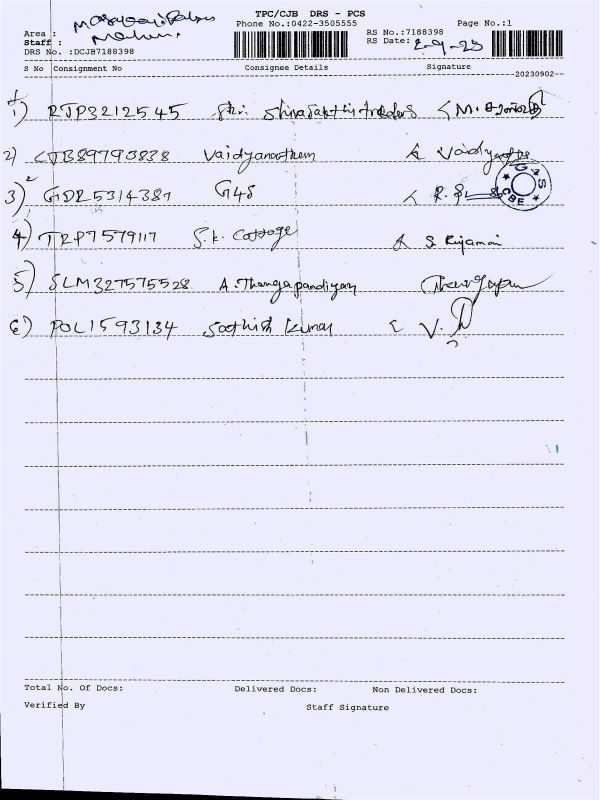 TPC/CJB DRS - PCS
Phone No.:0422-3505555
Page No.:1
Area :
Staff :
DRS No. :DCJB7188398
RS No.:7188398
RS Date: 2-9-23
S No Consignment No Consignee Details Signature
20230902
1) RJP3212545 Shri. Shivasakthi traders
2) CJB89793838 Vaidyanathan
3) GDR5314387 G4S
GHS CBE
4) TRP7579117 S.K. Cottage
5) SLM327575528 A. Thangapandiyan
6) POL1593134 Sathish Kumar
Total No. Of Docs: Delivered Docs: Non Delivered Docs:
Verified By Staff Signature